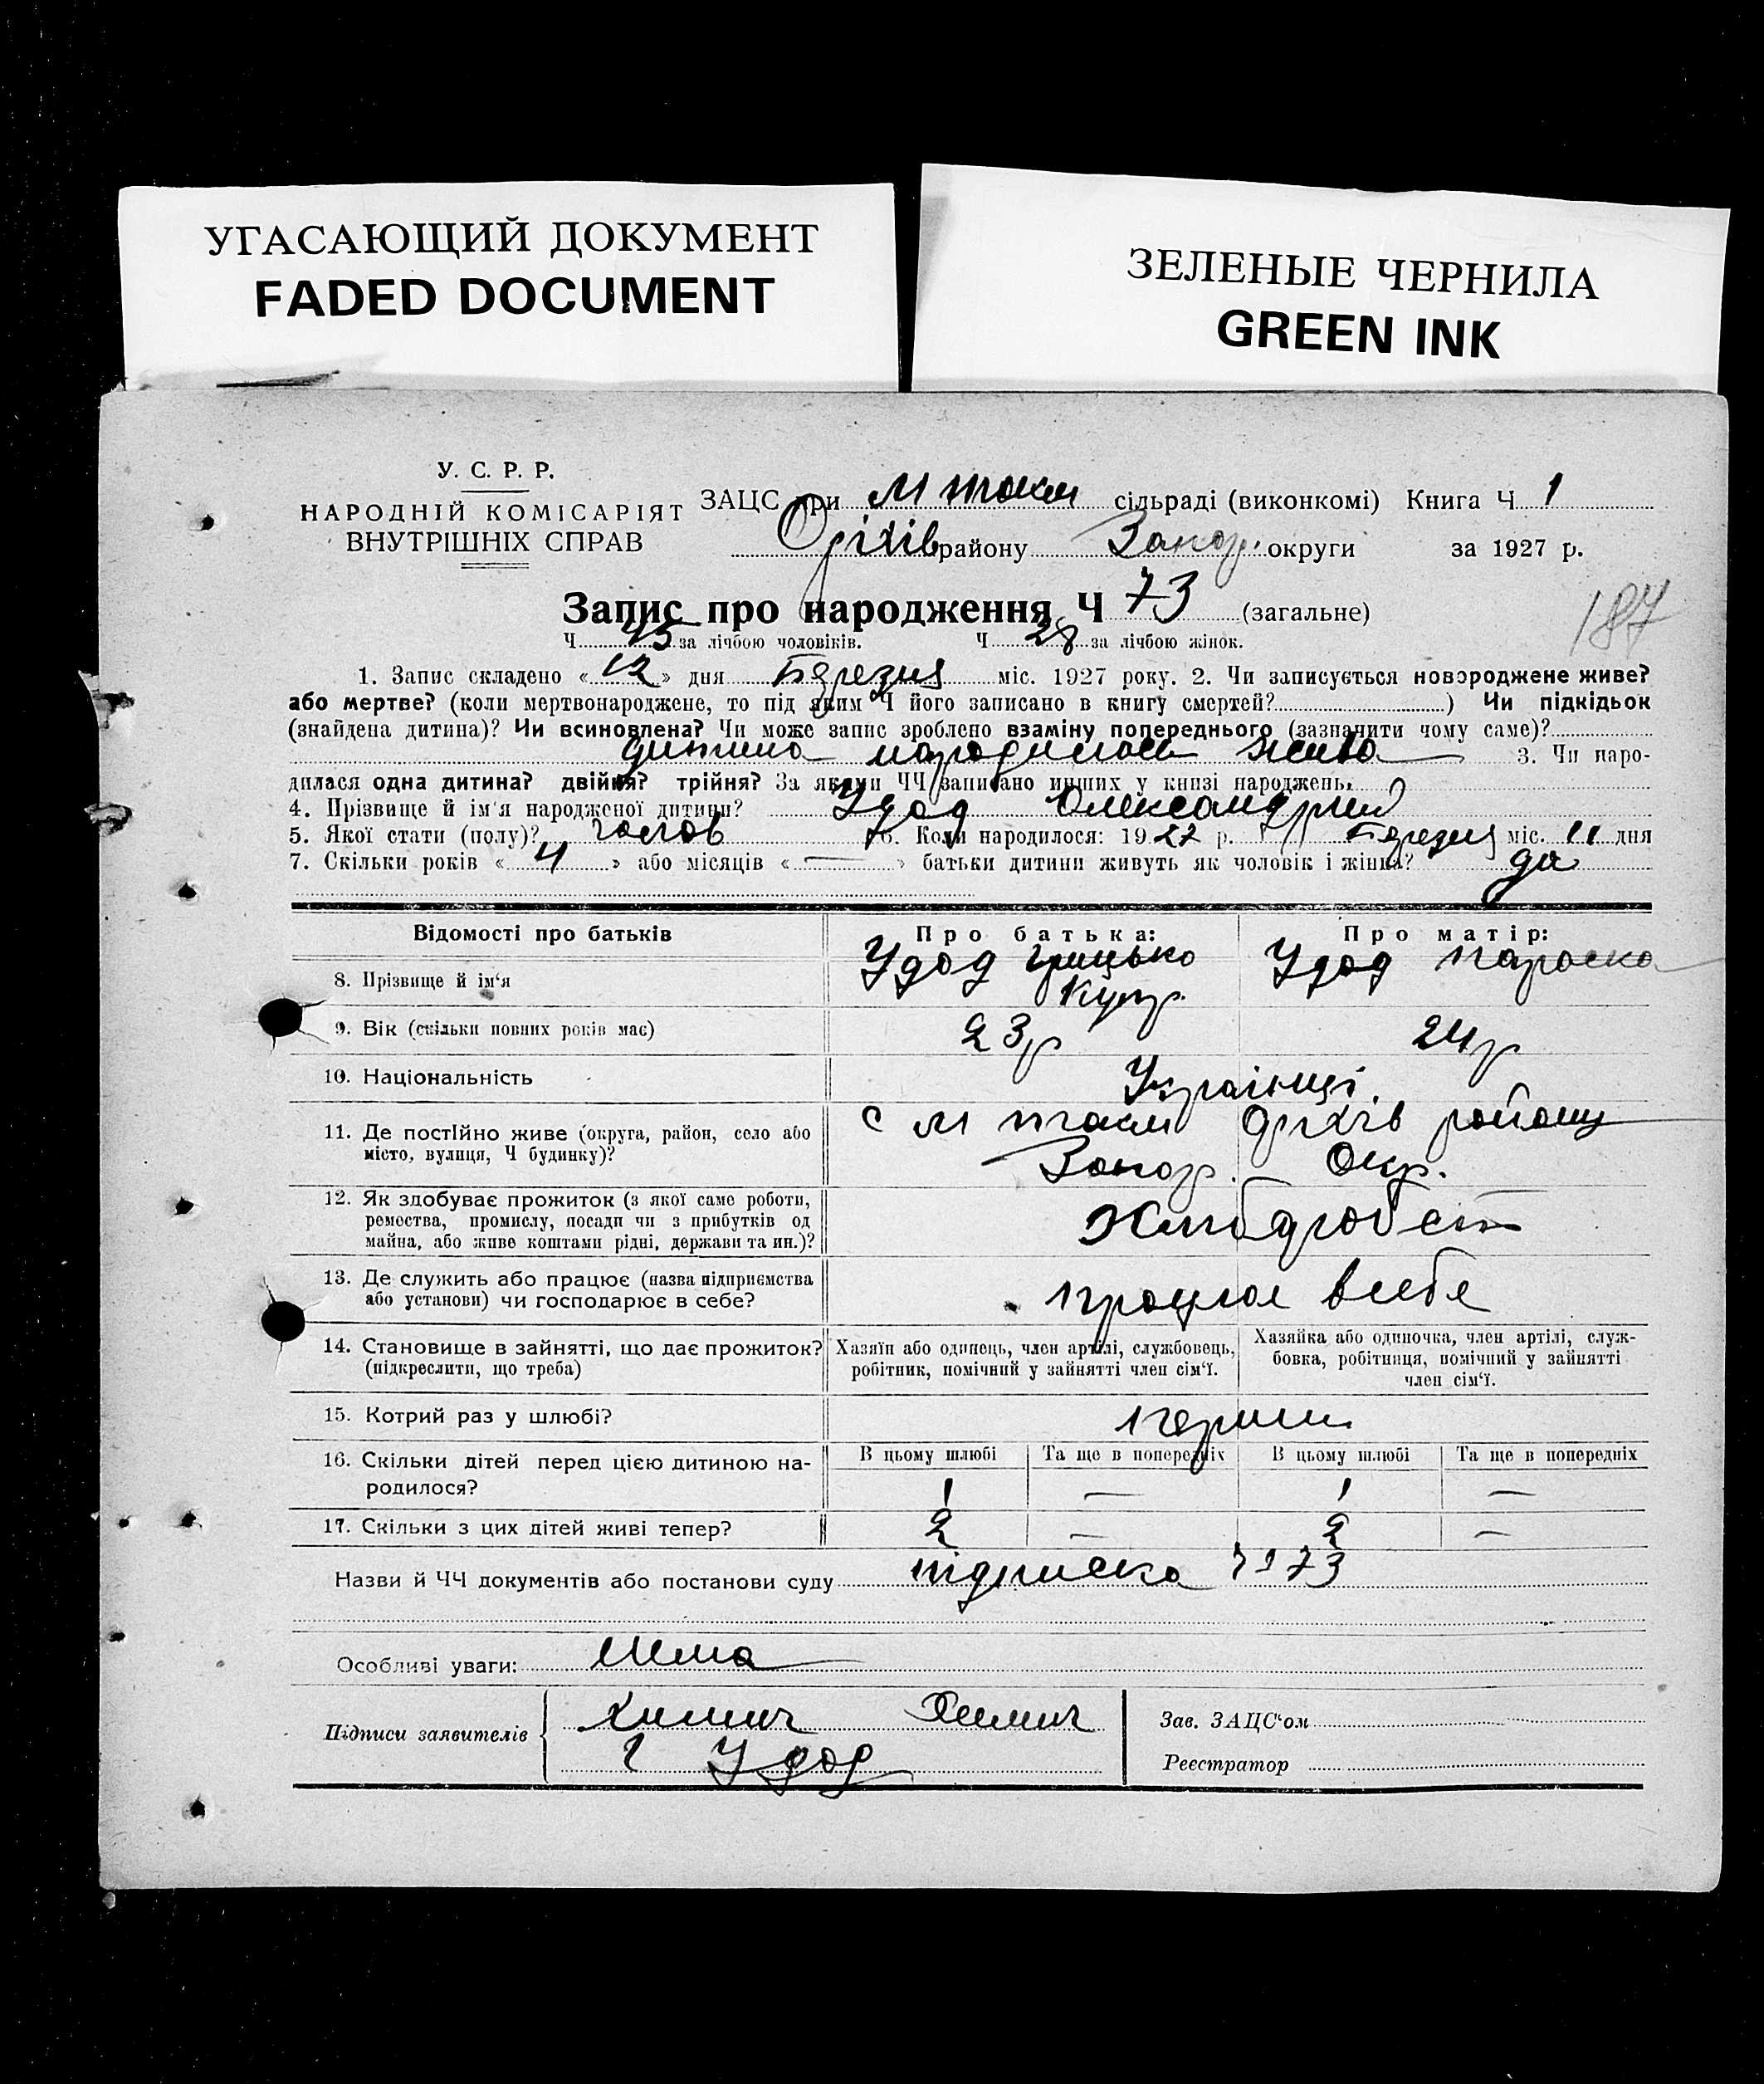 УГАСАЮЩИЙ ДОКУМЕНТ
FADED DOCUMENT
ЗЕЛЕНЫЕ ЧЕРНИЛА
GREEN INK
У. С. Р. Р.
НАРОДНІЙ КОМІСАРІЯТ
ВНУТРІШНІХ СПРАВ
ЗАЦС при М Токм сільраді (виконкомі) Книга Ч 1
Оріхів району Запор. округи за 1927 р.
Запис про народження Ч 73 (загальне)
187
Ч 45 за лічбою чоловіків. Ч 28 за лічбою жінок.
1. Запис складено « 12 » дня Березня міс. 1927 року. 2. Чи записується новороджене живе?
або мертве? (коли мертвонароджене, то під яким Ч його записано в книгу смертей? ) Чи підкідьок
(знайдена дитина)? Чи всиновлена? Чи може запис зроблено взаміну попереднього (зазначити чому саме)?
дитина народилась жива 3. Чи наро-
дилася одна дитина? двійня? трійня? За якими ЧЧ записано инших у книзі народжень.
4. Прізвище й ім'я народженої дитини? Удод Олександрий
5. Якої стати (полу)? чолов 6. Коли народилося: 1927 р. Березня міс. 11 дня
7. Скільки років « 4 » або місяців « — » батьки дитини живуть як чоловік і жінка? да
Відомості про батьків
Про батька:
Про матір:
8. Прізвище й ім'я
Удод Грицько
Купр.
Удод Параска
9. Вік (скільки повних років має)
23р
24р
10. Національність
Українці.
11. Де постійно живе (округа, район, село або
місто, вулиця, Ч будинку)?
с М Токм Оріхів району
Запор. Окр.
12. Як здобуває прожиток (з якої саме роботи,
ремества, промислу, посади чи з прибутків од
майна, або живе коштами рідні, держави та ин.)?
Хлібдробст
13. Де служить або працює (назва підприємства
або установи) чи господарює в себе?
працює в себе
14. Становище в зайнятті, що дає прожиток?
(підкреслити, що треба)
Хазяїн або одинець, член артілі, службовець,
робітник, помічний у зайнятті член сім'ї.
Хазяйка або одиночка, член артілі, служ-
бовка, робітниця, помічний у зайнятті
член сім'ї.
15. Котрий раз у шлюбі?
перший
16. Скільки дітей перед цією дитиною на-
родилося?
В цьому шлюбі Та ще в попередніх В цьому шлюбі Та ще в попередніх
1 — 1 —
17. Скільки з цих дітей живі тепер?
2 — 2 —
Назви й ЧЧ документів або постанови суду підписка 73
Особливі уваги: Нема
Підписи заявителів
Химич Химич
Г Удод
Зав. ЗАЦС'ом
Реєстратор